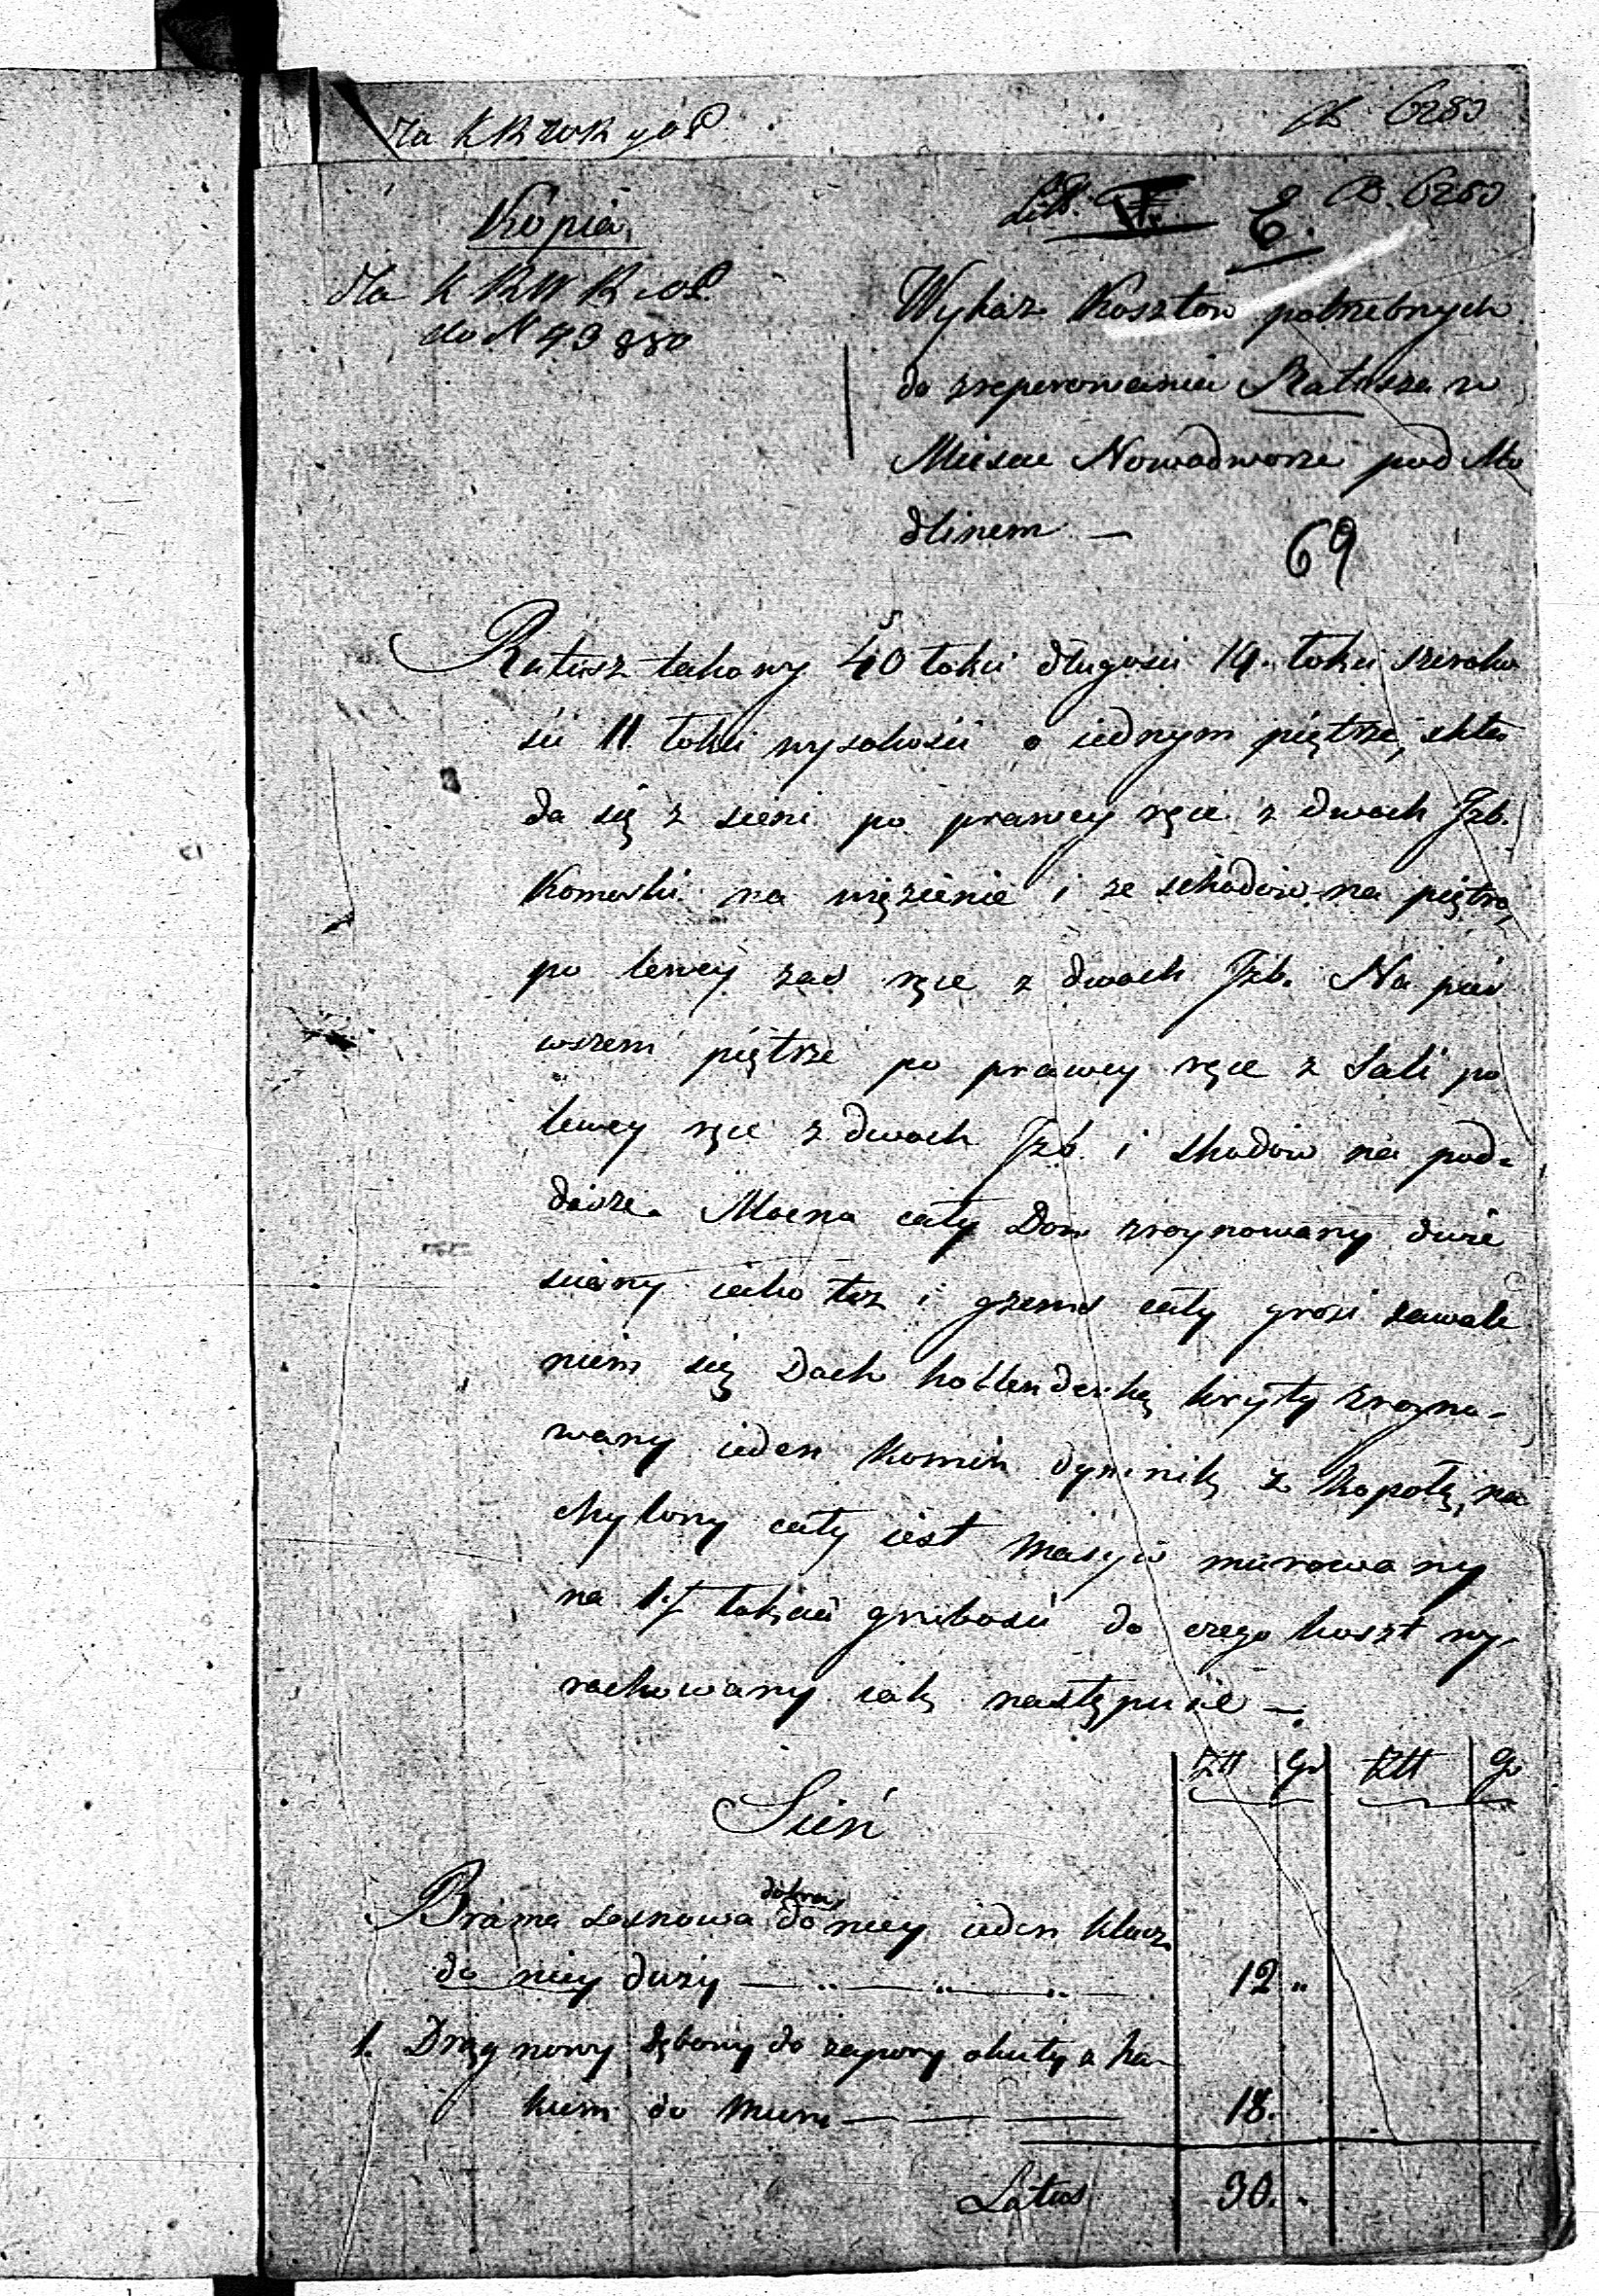 Kopia
do N 49880
Litt. E. B. 6280
Wykaz Kosztow potrzebnych
do zreperowania Ratusza w
Miescie Nowodworze pod Mo
dlinem —
69
Ratusz takowy łokci długosci 19. łokci szeroko
sci 11. łokci wysokosci o iednym piętrze, skła
da się z sieni po prawey ręce z dwoch Jzb.
Komorki na więzienie i ze schodow na piętro,
po lewey zas ręce z dwoch Jzb. Na pier
wszem piętrze po prawey ręce z Sali po
lewey ręce z dwoch Jzb. i skodow na pod-
dasze. Mocno cały Dom zroynowany dwie
sciany iako tez i gzems cały grozi zawale
niem się Dach hollenderką kryty zroyno-
wany ieden Komin dymnik z kapotą, na
chylony cały iest masyw murowany
na łokcia grubosci do czego koszt wy-
rachowany iak następuie —.
Ztt gr Ztt gr
Sień
dobra
Brama sosnowa do niey ieden klucz
do niey duzy — 12 „
1. Drąg nowy dębowy do zapory okuty z ha-
kiem do muru — 18.
Latus 30. „